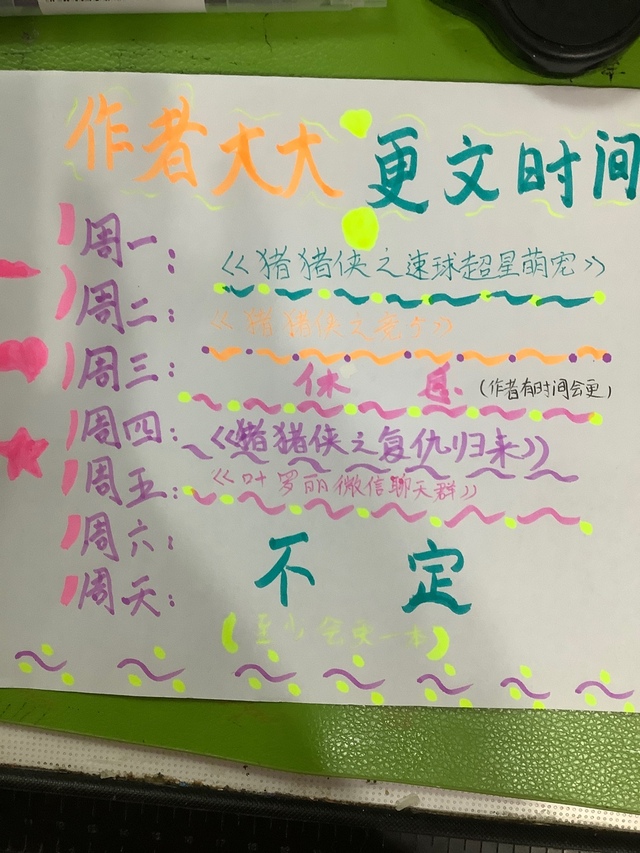 作者大大 更文时间
周一：《猪猪侠之速球超星萌宠》
周二：《猪猪侠之竞士》
周三：休息（作者有时间会更）
周四：《猪猪侠之复仇归来》
周五：《叶罗丽微信聊天群》
周六：
周天：
不定
（至少会更一本）